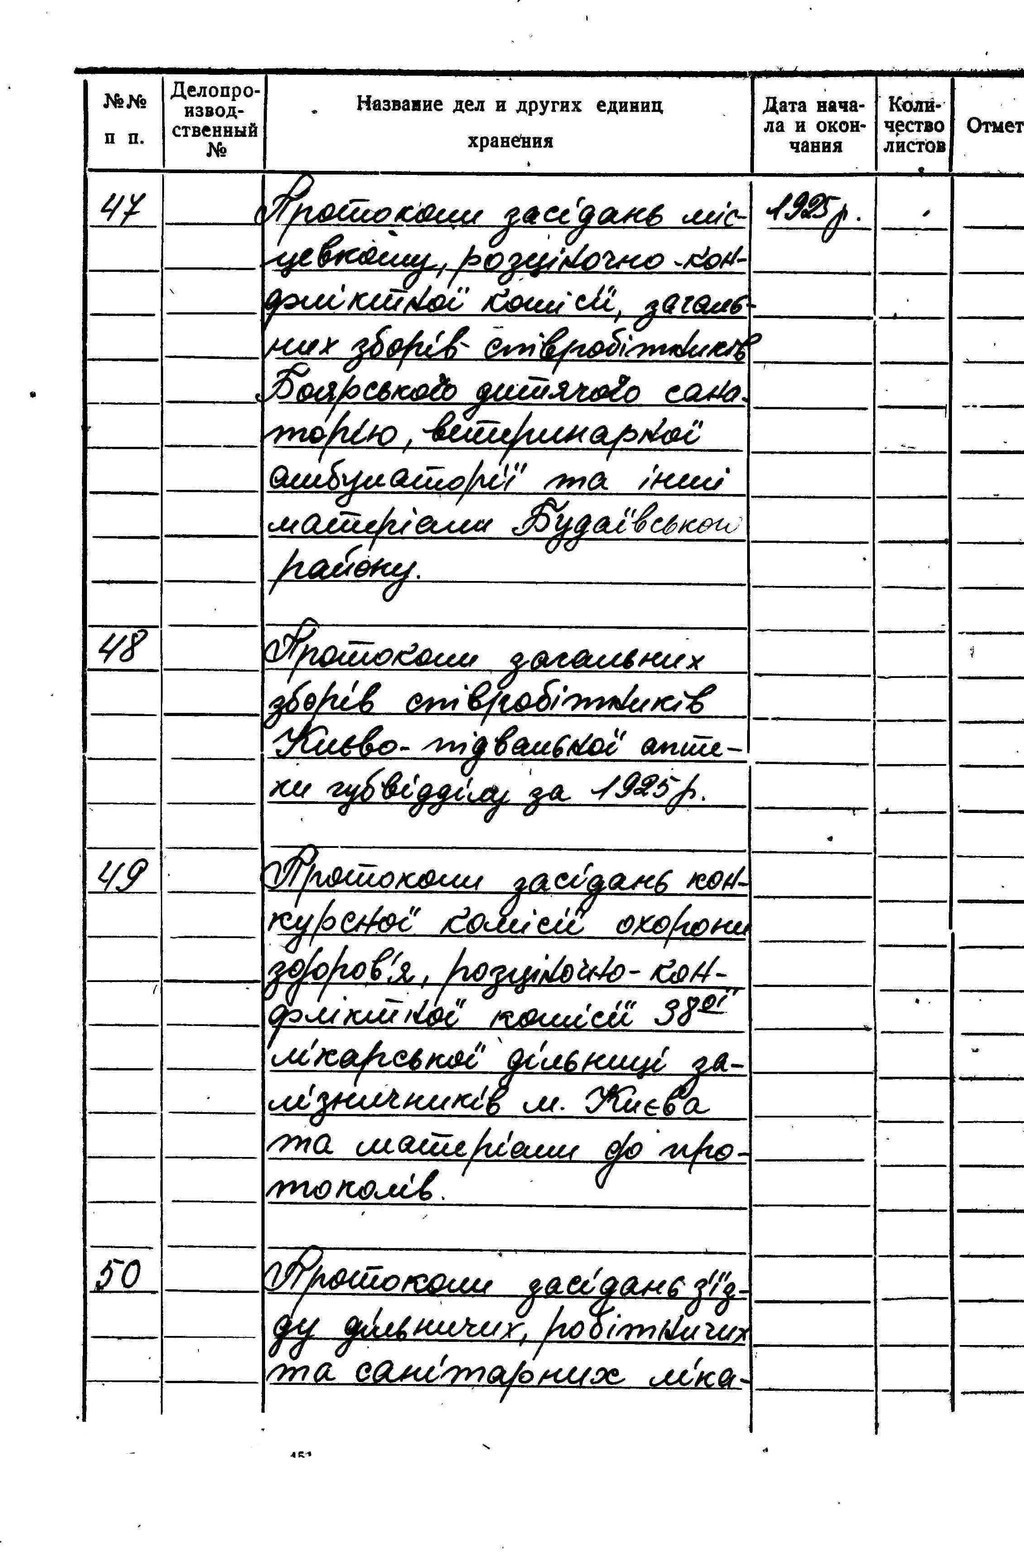 №№ п п.
Делопро-
изводст-
венный
№
Название дел и других единиц
хранения
Дата нача-
ла и окон-
чания
Коли-
чество
листов
Отмет
47 Протоколи засідань міс- 1925 р.
цевкому, розціночно-кон-
фліктної комісії, загаль-
них зборів співробітників
Боярського дитячого сана-
торію, ветеринарної
амбулаторії та інші
матеріали Будаївського
району.
48 Протоколи загальних
зборів співробітників
Києво-підвальної апте-
ки губвідділу за 1925 р.
49 Протоколи засідань кон-
курсної комісії охорони
здоров'я, розціночно-кон-
фліктної комісії 38ої
лікарської дільниці за-
лізничників м. Києва
та матеріали до про-
токолів.
50 Протоколи засідань з'їз-
ду дільничих, робітничих
та санітарних ліка-